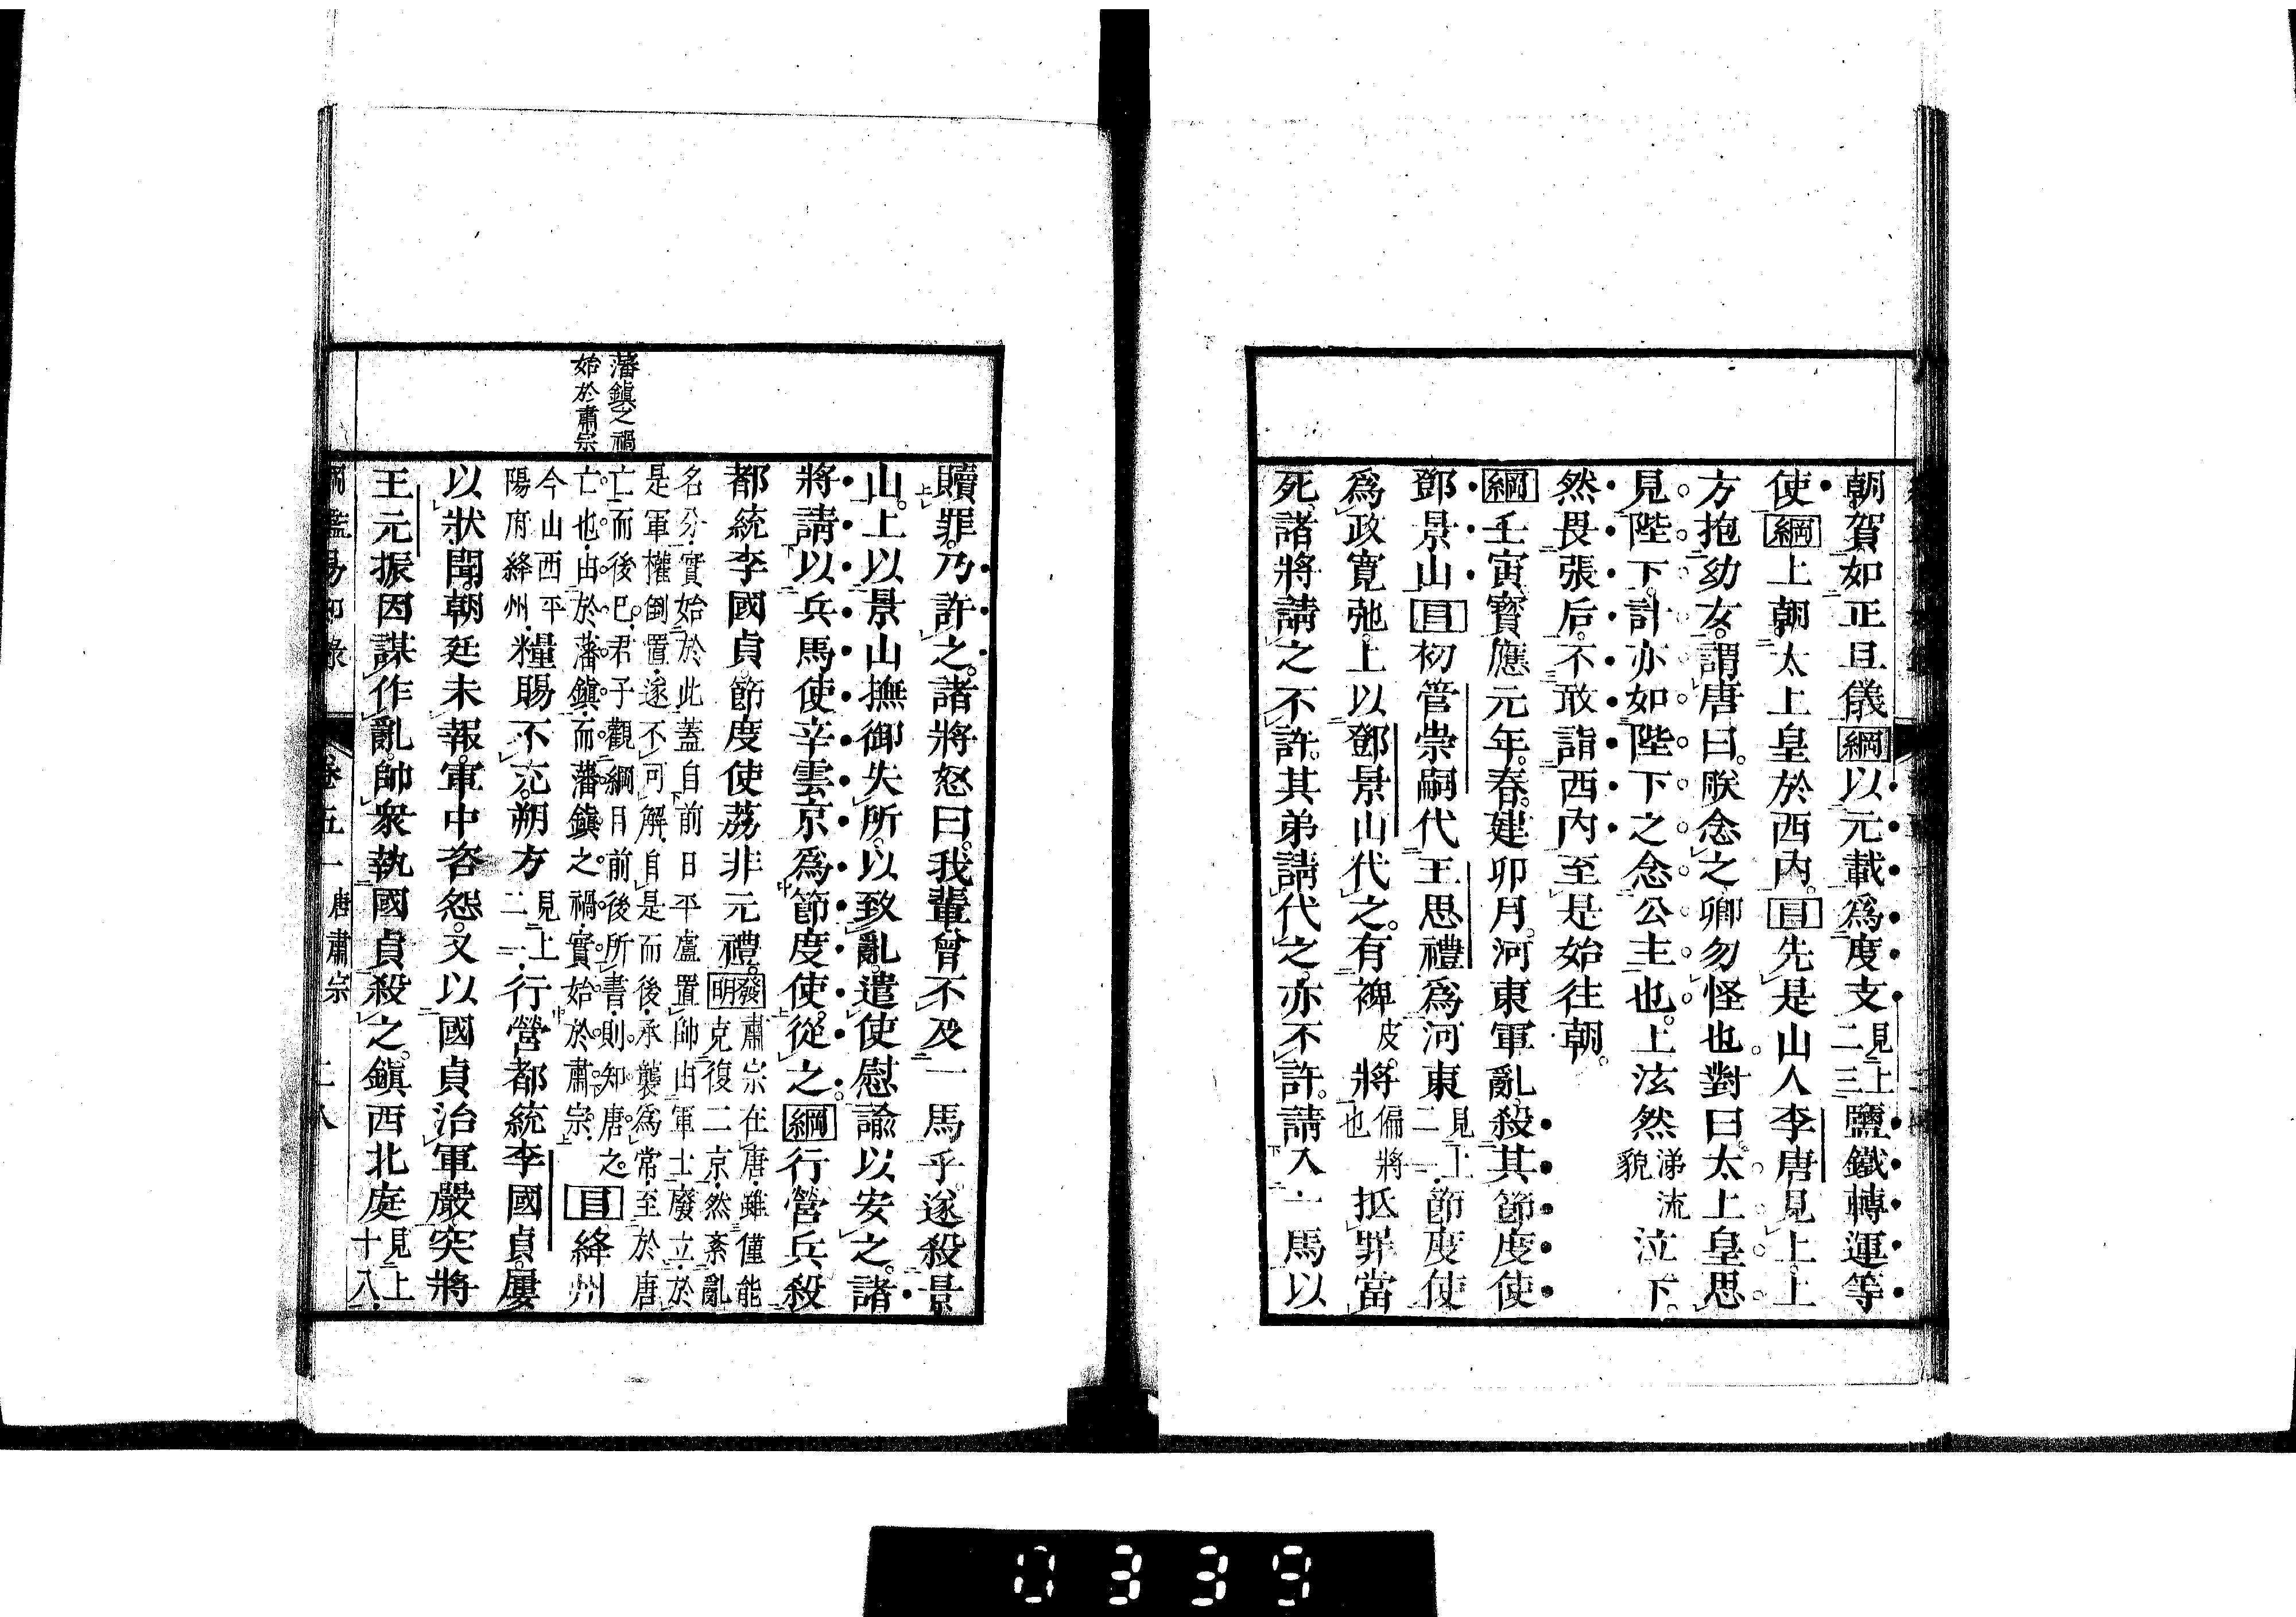 朝賀如正旦儀綱以元載爲度支見上二三鹽鐵轉運等
使綱上朝太上皇於西内目先是山人李唐見上上
方抱幼女謂唐曰朕念之卿勿怪也對曰太上皇思
見陛下計亦如陛下之念公主也上泫然涕流貌泣下
然畏張后不敢詣西内至是始往朝
綱壬寅寶應元年春建卯月河東軍亂殺其節度使
鄧景山目初管崇嗣代王思禮爲河東見上二一節度使
爲政寬弛上以鄧景山代之有裨皮將偏將也抵罪當
死諸將請之不許其弟請代之亦不許請入一馬以
贖罪乃許之諸將怒曰我輩曾不及一馬乎遂殺景
山上以景山撫御失所以致亂遣使慰諭以安之諸
將請以兵馬使辛雲京爲節度使從之綱行營兵殺
都統李國貞節度使荔非元禮發明肅宗在唐雖僅能克復二京然紊亂
名分實始於此蓋自前日平盧置帥由軍士廢立於是軍權倒置遂不可解自是而後承襲爲常至於唐
亡而後已君子觀綱目前後所書則知唐之亡也由於藩鎭而藩鎭之禍實始於肅宗目絳州
今山西平陽府絳州糧賜不充朔方見上二一行營都統李國貞屢
以狀聞朝廷未報軍中咨怨又以國貞治軍嚴突將
王元振因謀作亂帥衆執國貞殺之鎭西北庭見上十八
藩鎭之禍
始於肅宗
卷五一 唐肅宗
0339